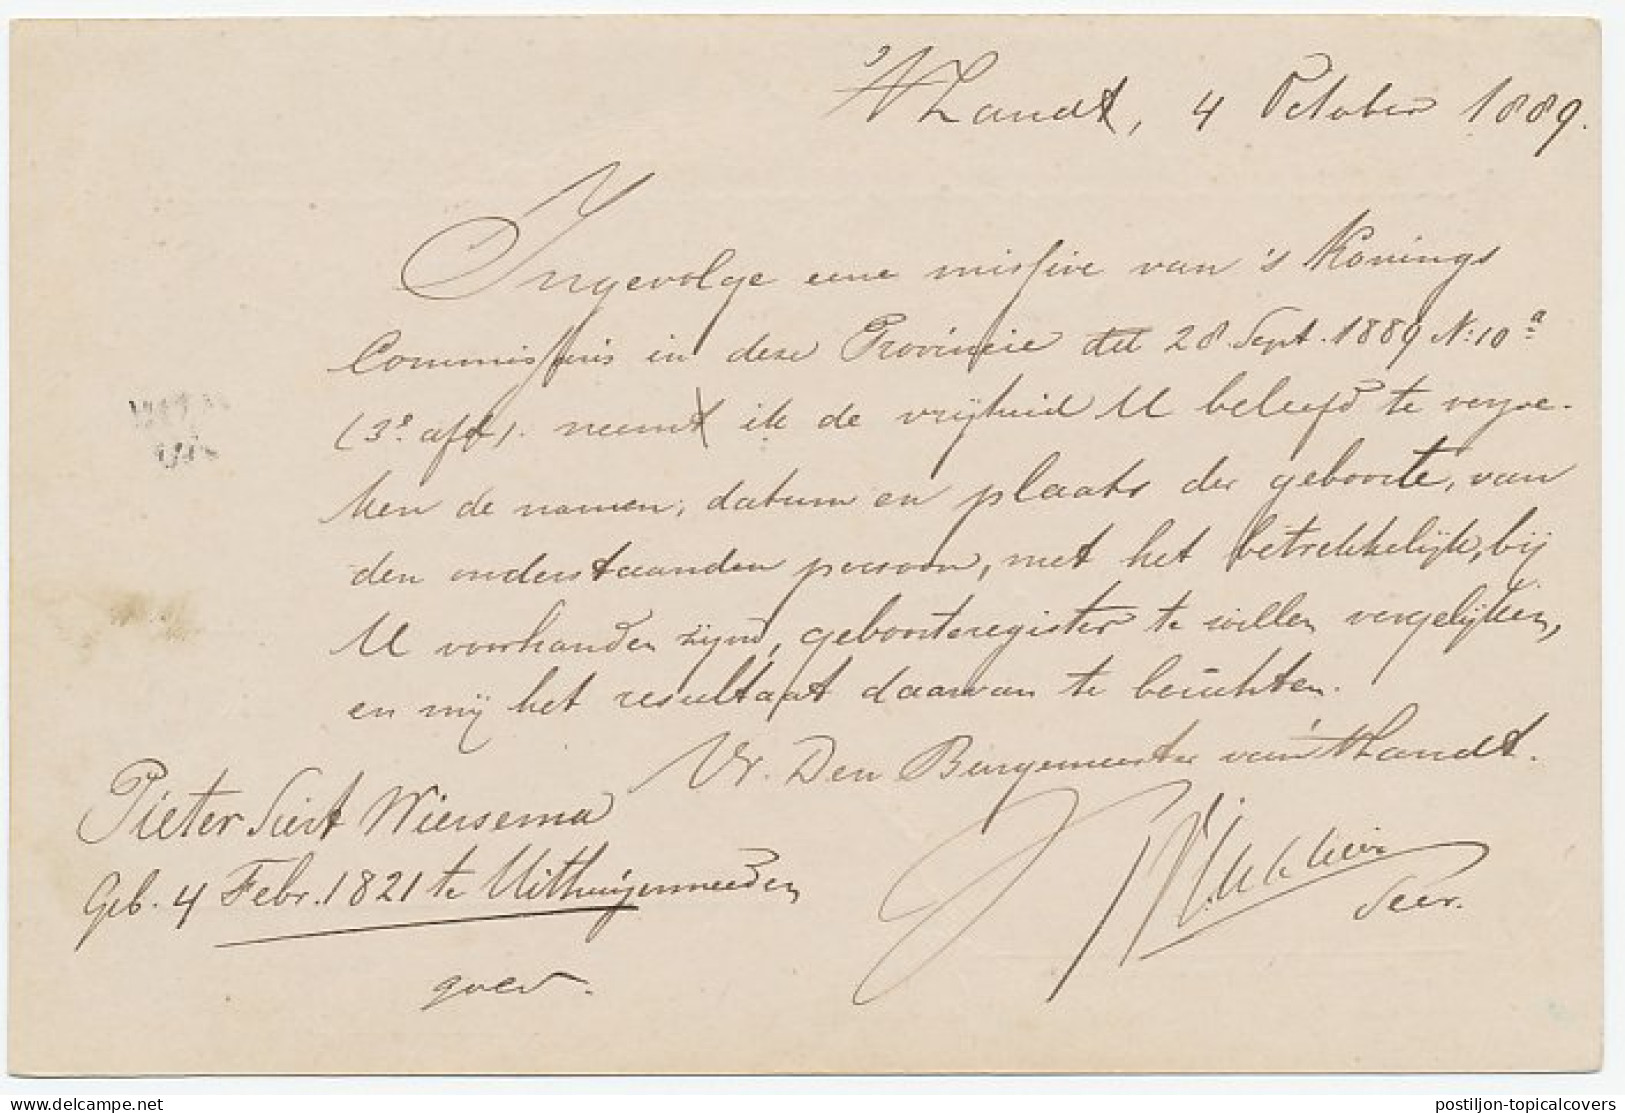 't Zandt, 4 October 1889.
Ingevolge eene missive van 's Konings
Commissaris in deze Provincie dd 28 Sept. 1889 N: 10a
(3e afd). neemt ik de vrijheid U beleefd te verzoe-
ken de namen, datum en plaats der geboorte, van
den onderstaanden persoon, met het betrekkelijk, bij
U voorhanden zijnd, geboorteregister te willen vergelijken,
en mij het resultaat daarvan te berichten.
Den Burgemeester van 't Zandt.
Pieter Siert Wiersema
Geb. 4 Febr. 1821 te Uithuizermeeden
Secr.
goed.
postiljon-topicalcovers
delcampe.net